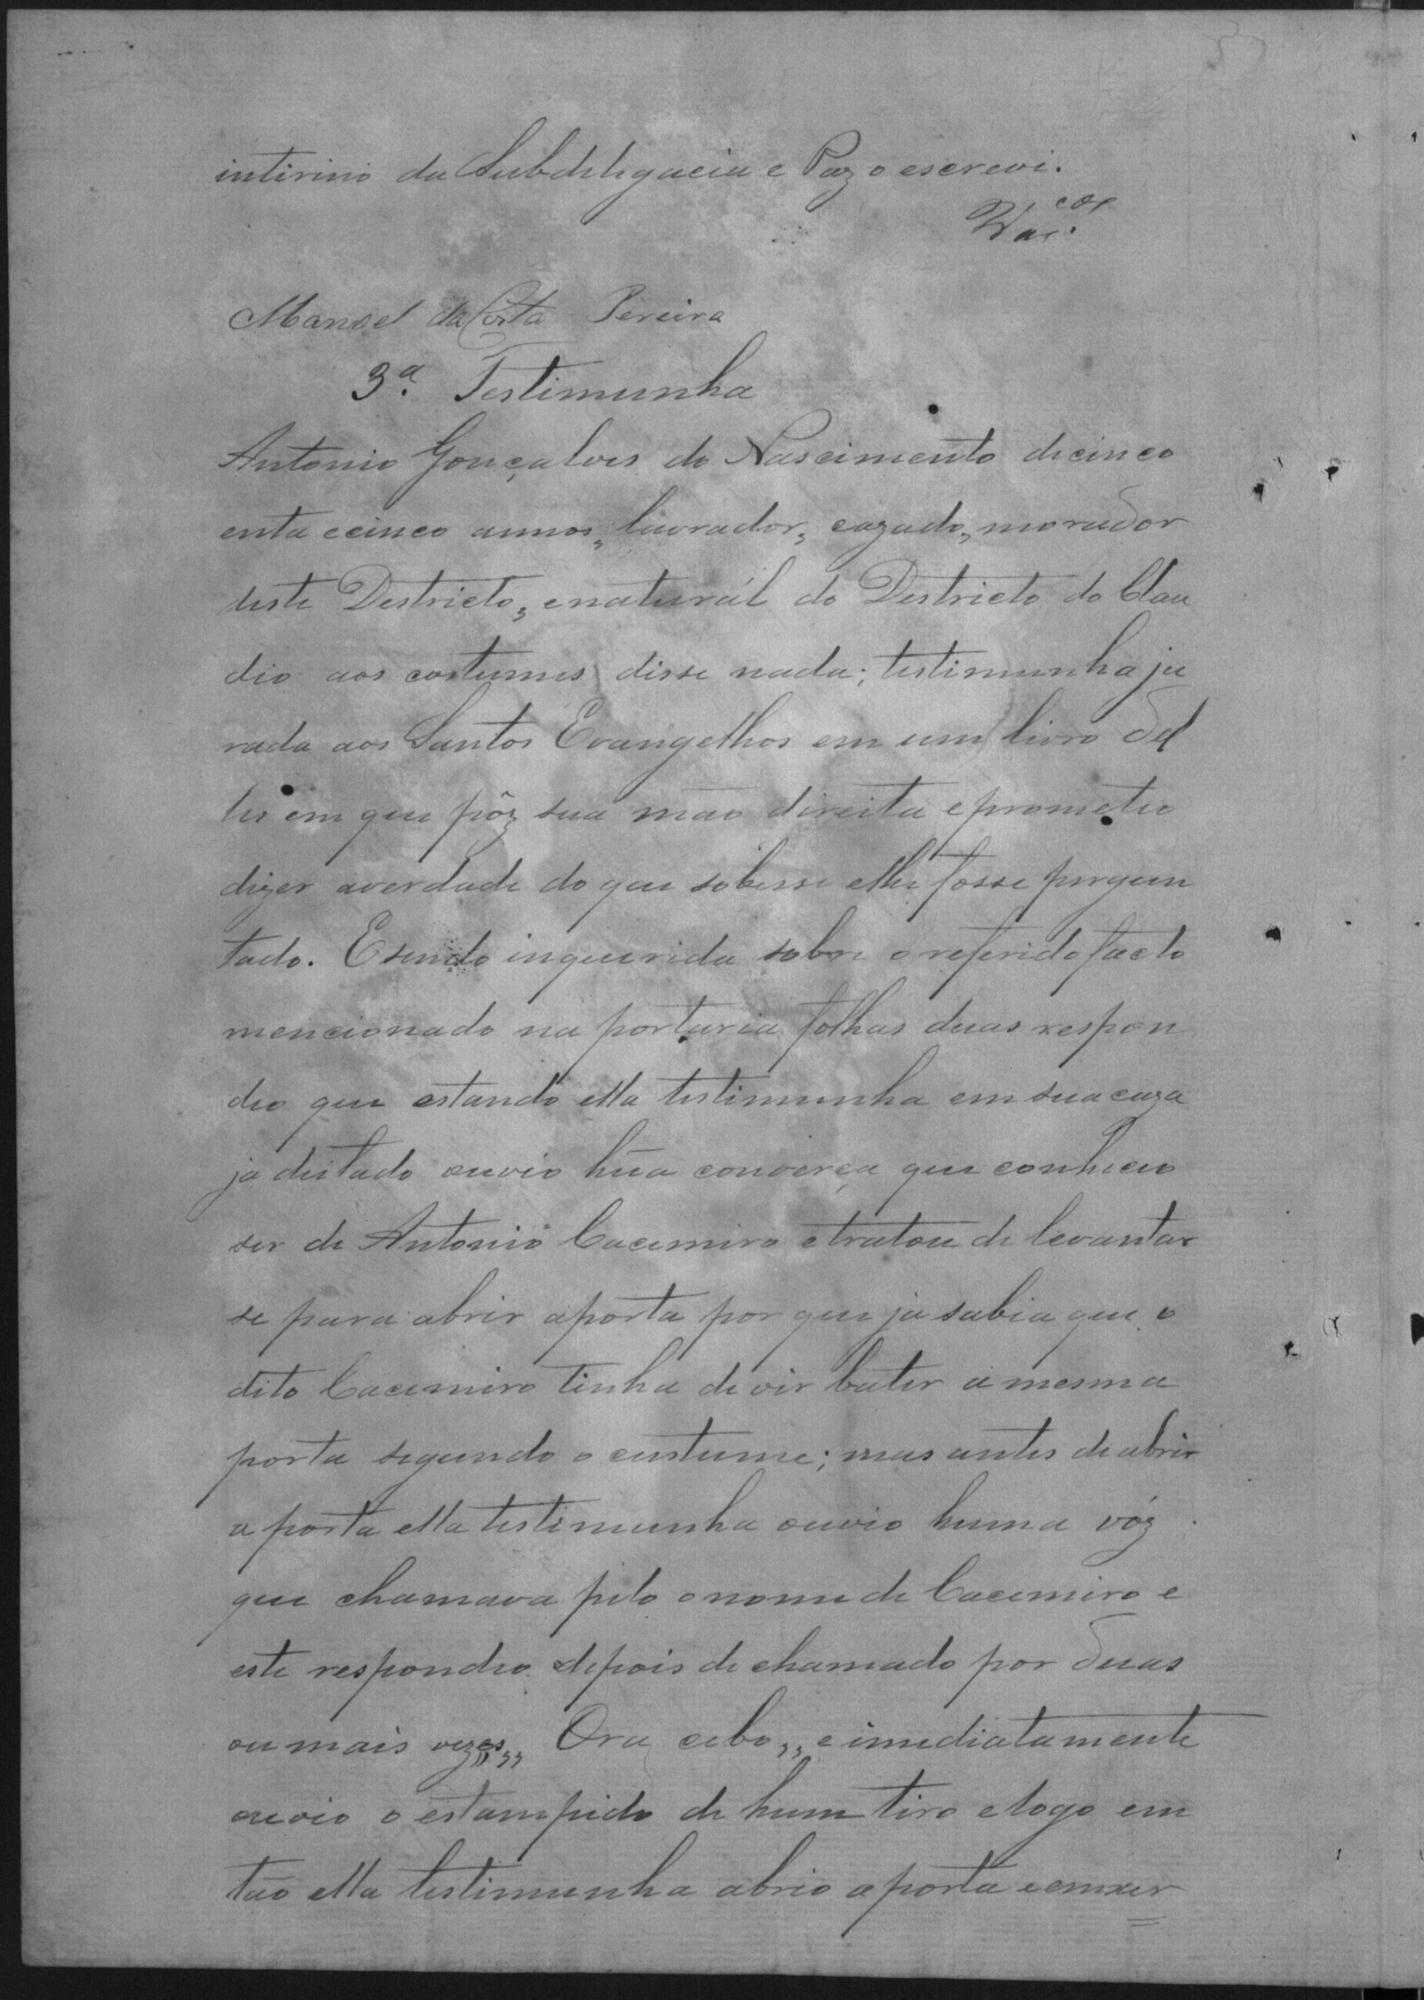 intirino da Subdeligacia e Paz o escrevi.
Manoel da Costa Pereira
3ª. Testimunha
Antonio Gonçalves do Nascimento de cinco
enta e cinco annos, lavrador, cazado, morador
deste Destricto, e naturál do Destricto do Clau
dio aos costumes disse nada; testimunha ju
rada aos Santos Evangelhos em um livro del
les em que pôz sua mão direita e prometeo
dizer averdade do que sobesse e lhe fosse pergun
tado. E sendo inquerida sobre o referido facto
mencionado na portaria folhas duas respon
deo que estando ella testimunha em sua caza
ja deitado ouvio hũa converça que conheceo
ser de Antonio Cacemiro e tratou de levantar
se para abrir aporta por que ja sabia que o
dito Cacemiro tinha de vir bater a mesma
porta segundo o custume; mas antes de abrir
a porta ella testimunha ouvio huma vóz
que chamava pelo o nome de Cacemiro e
este respondeo depois de chamado por duas
ou mais vezes,, Ora cebo,, e imediatamente
ouvio o estampido de hum tiro e logo em
tão ella testimunha abrio aporta e